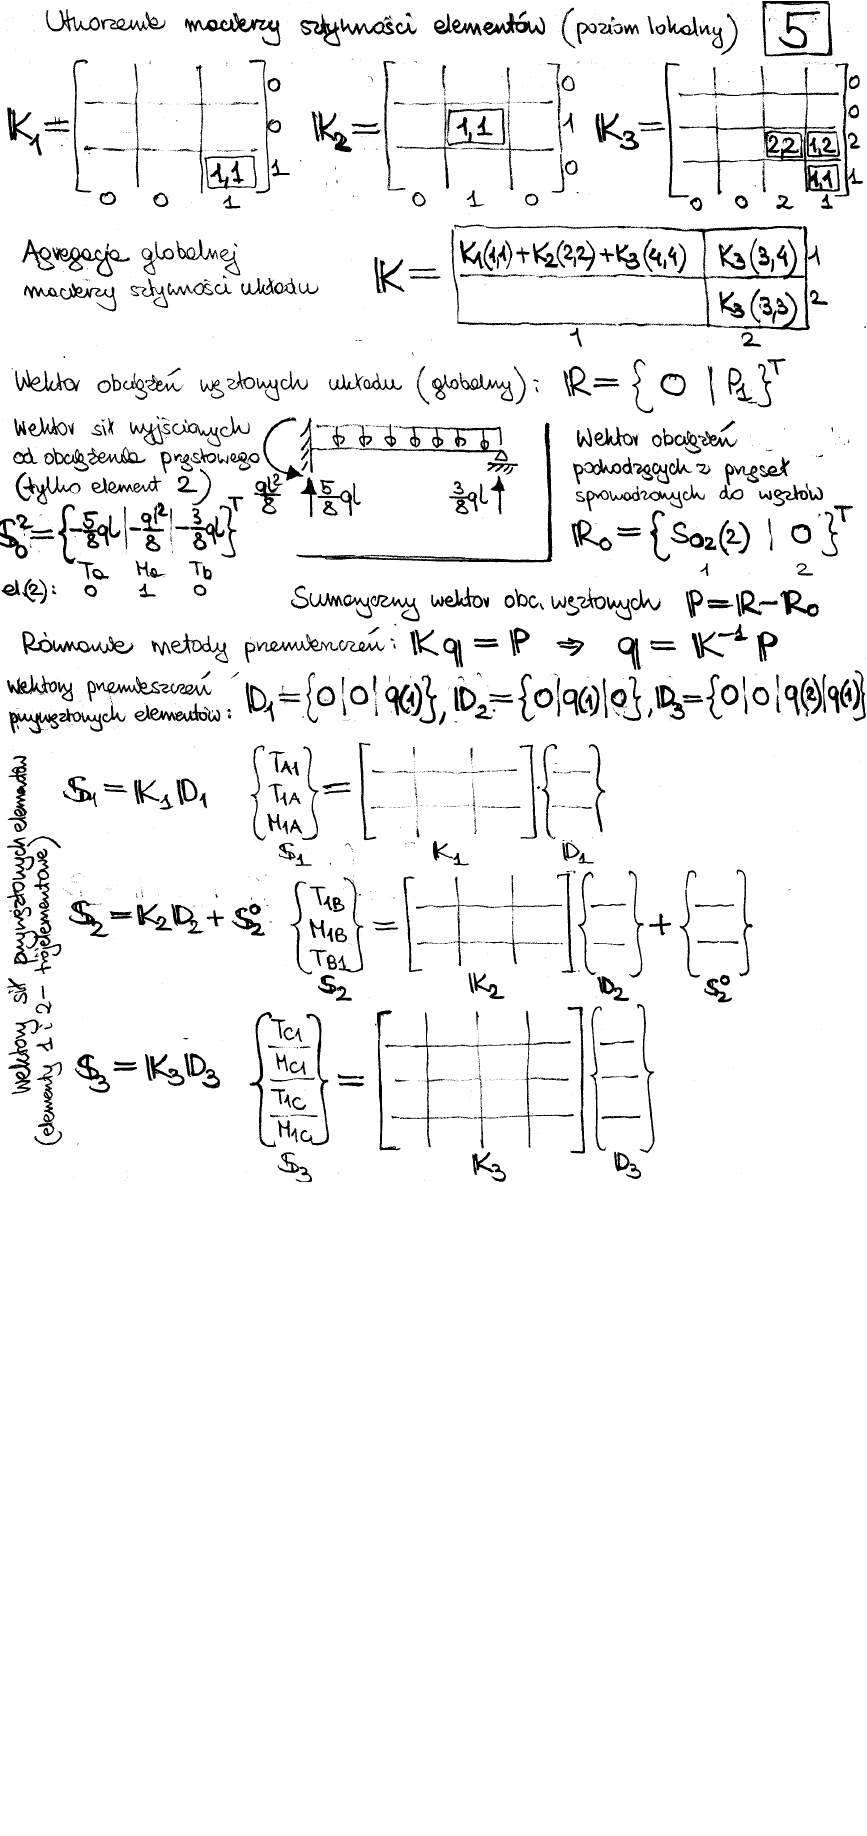 Utworzenie macierzy sztywności elementów (poziom lokalny) 5
K1 = [ 1,1 ] 0 0 1
0 0 1
K2 = [ 1,1 ] 0 1 0
0 1 0
K3 = [ 2,2 1,2 1,1 ] 0 0 2 1
0 0 2 1
Agregacja globalnej
macierzy sztywności układu
K = K1(1,1)+K2(2,2)+K3(4,4) K3(3,4) 1
K3(3,3) 2
1 2
Wektor obciążeń węzłowych układu (globalny): R = { 0 | P1 }^T
Wektor sił wyjściowych
od obciążenia prętowego
(tylko element 2)
S0^2 = {-5/8 ql | -ql²/8 | -3/8 ql}^T
Ta Ma Tb
el.(2): 0 1 0
ql²/8 5/8 ql 3/8 ql
Wektor obciążeń
pochodzących z przęseł
sprowadzonych do węzłów
R0 = { S02(2) | 0 }^T
1 2
Sumaryczny wektor obc. węzłowych P = R - R0
Równanie metody przemieszczeń: K q = P ⇒ q = K^-1 P
Wektory przemieszczeń
przywęzłowych elementów:
D1 = {0|0|q(1)}, D2 = {0|q(1)|0}, D3 = {0|0|q(2)|q(1)}
Wektory sił przywęzłowych elementów
(elementy 1 i 2 - trójelementowe)
S1 = K1 D1 { TA1 T1A M1A } = [ ] { }
S1 K1 D1
S2 = K2 D2 + S2° { T1B M1B TB1 } = [ ] { } + { }
S2 K2 D2 S2°
S3 = K3 D3 { TC1 MC1 T1C M1C } = [ ] { }
S3 K3 D3